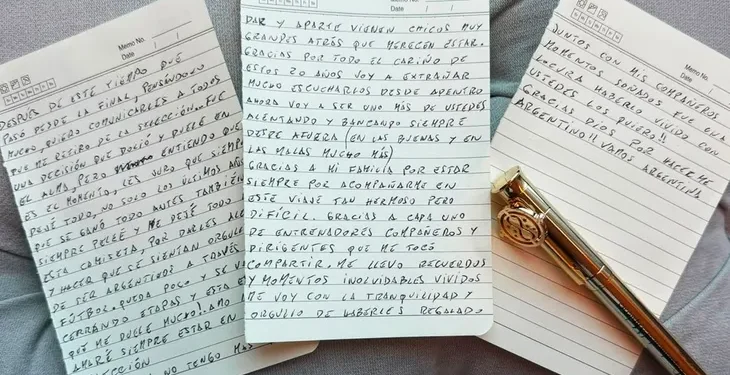 Memo No.
Date / /
DESPUÉS DE ESTE TIEMPO QUE
PASÓ DESDE LA FINAL, PENSÁNDOLO
MUCHO, QUIERO COMUNICARLES A TODOS
QUE ME RETIRO DE LA SELECCIÓN. FUE
UNA DECISIÓN QUE DOLIÓ Y DUELE EN
EL ALMA, PERO ENTIENDO QUE
ES EL MOMENTO, LES JURO QUE SIEMPRE
DEJÉ TODO, NO SOLO LOS ÚLTIMOS AÑOS
QUE SE GANÓ TODO ANTES TAMBIÉN
SIEMPRE PELEÉ Y ME DEJÉ TODO
ESTA CAMISETA, POR DARLES
Y HACER QUE SE SIENTAN
DE SER ARGENTINOS A TRAVÉS
FÚTBOL. QUEDA POCO Y SE VA
CERRANDO ETAPAS Y ESTA
QUE ME DUELE MUCHO! AMO
AMARÉ SIEMPRE ESTAR EN
SELECCIÓN
NO TENGO
Memo No.
Date / /
DAR Y APARTE VIENEN CHICOS MUY
GRANDES ATRÁS QUE MERECEN ESTAR.
GRACIAS POR TODO EL CARIÑO DE
ESTOS 20 AÑOS VOY A EXTRAÑAR
MUCHO ESCUCHARLOS DESDE ADENTRO
AHORA VOY A SER UNO MÁS DE USTEDES
ALENTANDO Y BANCANDO SIEMPRE
DESDE AFUERA (EN LAS BUENAS Y EN
LAS MALAS MUCHO MÁS)
GRACIAS A MI FAMILIA POR ESTAR
SIEMPRE POR ACOMPAÑARME EN
ESTE VIAJE TAN HERMOSO PERO
DIFÍCIL. GRACIAS A CADA UNO
DE ENTRENADORES COMPAÑEROS Y
DIRIGENTES QUE ME TOCÓ
COMPARTIR. ME LLEVO RECUERDOS
Y MOMENTOS INOLVIDABLES VIVIDOS
ME VOY CON LA TRANQUILIDAD Y
ORGULLO DE HABERLES REGALADO
Memo No.
Date / /
JUNTOS CON MIS COMPAÑEROS
MOMENTOS SOÑADOS FUE UNA
LOCURA HABERLO VIVIDO CON
USTEDES LOS QUIERO!!
GRACIAS DIOS POR HACERME
ARGENTINO!! VAMOS ARGENTINA